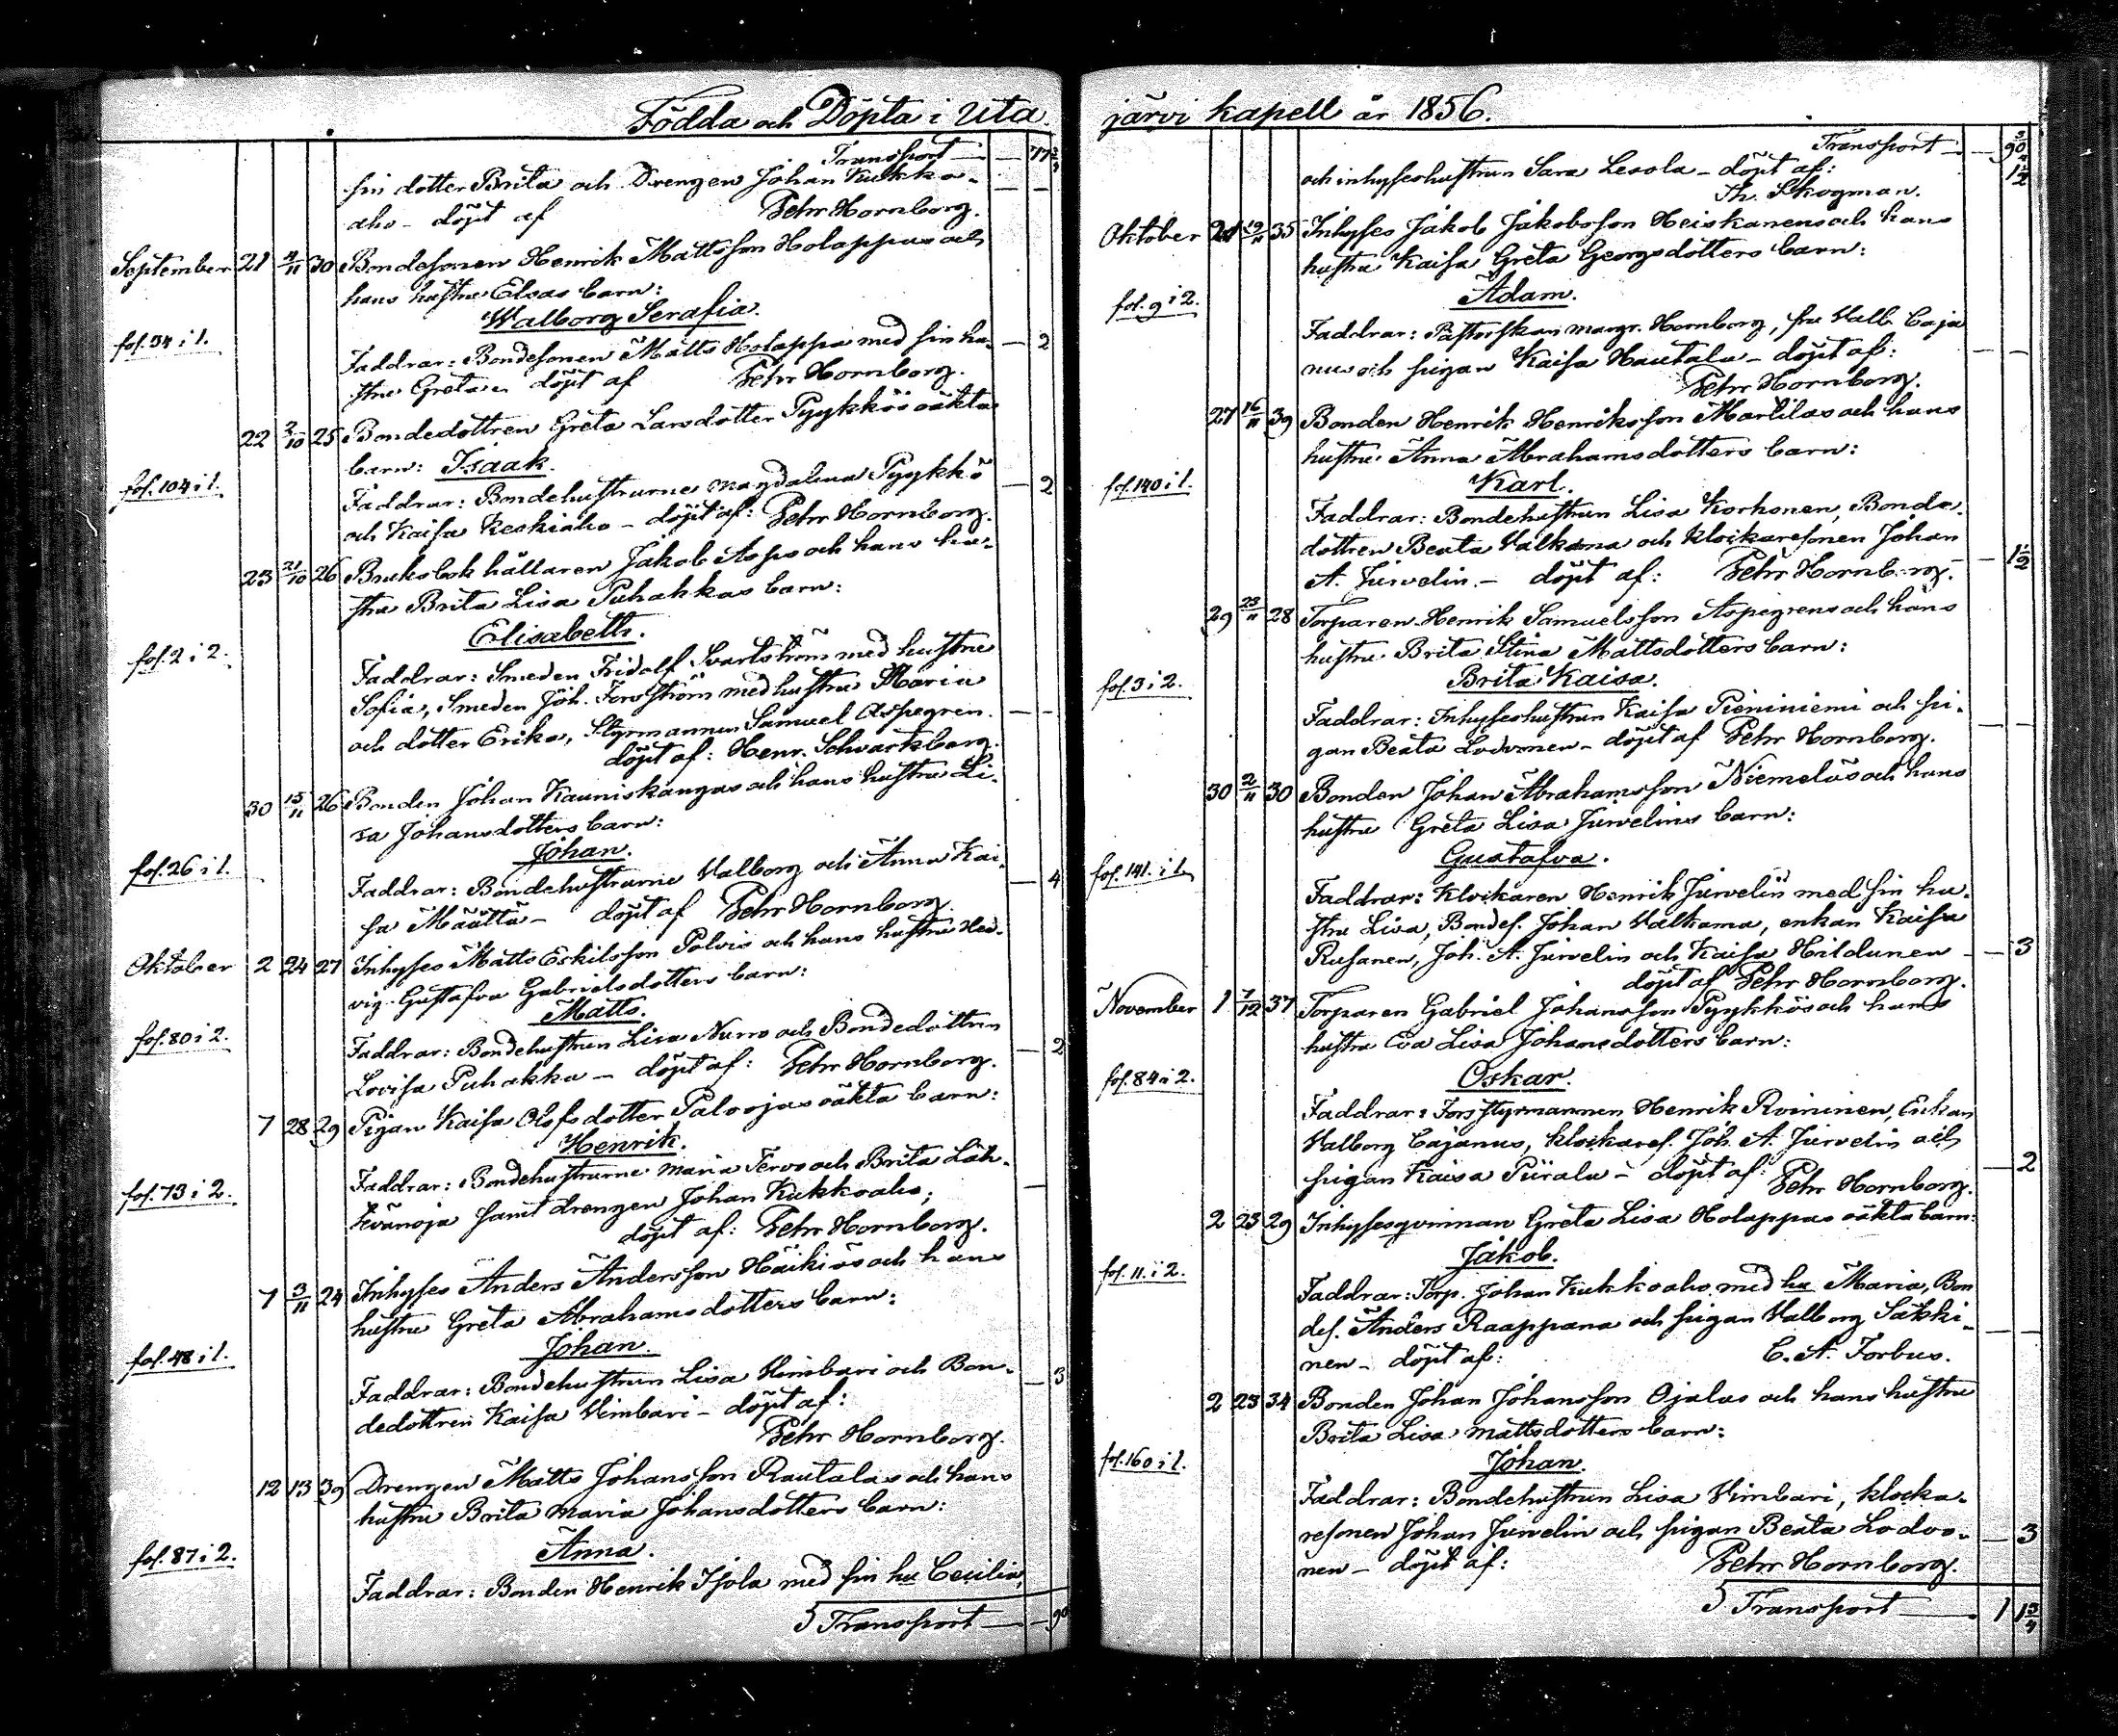 Födda och Döpta i Uta-
Transport — — 77 3/4
sin dotter Brita och Drengen Johan Kukko-
aho - döpt af Pehr Hornborg.
September 21 4/11 30 Bondesonen Henrik Mattsson Holappas och
hans hustru Elsas barn:
Walborg Serafia.
fol. 34 i 1.
Faddrar: Bondesonen Matts Holappa med sin hu- — 2
stru Greta - döpt af Pehr Hornborg.
22 2/10 25 Bondedottren Greta Larsdotter Pyykkös oäkta
barn: Isaak.
fol. 104 i 1.
Faddrar: Bondehustrurne Magdalena Pyykkö — 2
och Kaisa Keskiaho - döpt af: Pehr Hornborg.
23 21/10 26 Bruksbokhållaren Jakob Asps och hans hu-
stru Brita Lisa Puhakkas barn:
Elisabeth.
fol. 2 i 2.
Faddrar: Smeden Fridolf Svartström med hustru
Sofia, Smeden Joh. Forsström med hustru Maria
och dotter Erika, Styrmannen Samuel Aspegren. — —
döpt af: Henr. Schwartzberg.
30 15/11 26 Bonden Johan Kauniskangas och hans hustru Li-
sa Johansdotters barn:
Johan.
fol. 26 i 1.
Faddrar: Bondehustrurne Valborg och Anna Kai- — 4
sa Määttä - döpt af Pehr Hornborg.
Oktober 2 24 27 Inhyses Matts Eskilsson Polvis och hans hustru Hed-
vig Gustafva Gabrielsdotters barn:
Matts.
fol. 80 i 2.
Faddrar: Bondehustrun Lisa Nurro och Bondedottren — 2
Lovisa Puhakka - döpt af: Pehr Hornborg.
7 28 29 Pigan Kaisa Olofsdotter Paloojas oäkta barn:
Henrik.
fol. 73 i 2.
Faddrar: Bondehustrurne Maria Tervo och Brita Läh- —
tevänoja samt drengen Johan Kukkoaho;
döpt af: Pehr Hornborg.
7 3/11 24 Inhyses Anders Andersson Häikiös och hans
hustru Greta Abrahamsdotters barn:
Johan.
fol. 48 i 1.
Faddrar: Bondehustrun Lisa Vimbari och Bon- — 3
dedottren Kaisa Vimbari - döpt af:
Pehr Hornborg.
12 13 39 Drengen Matts Johansson Rautalas och hans
hustru Brita Maria Johansdotters barn:
Anna.
fol. 87 i 2.
Faddrar: Bonden Henrik Isola med sin hu Cecilia,
Transport — — 90
järvi kapell år 1856.
Transport — — 90 3/4
och inhyseshustrun Sara Lesola - döpt af: 1 1/2
Th. Skogman.
Oktober 19/11 35 Inhyses Jakob Jakobsson Heiskanens och hans
hustru Kaisa Greta Georgsdotters barn:
Adam.
fol. 9 i 2.
Faddrar: Pastorskan Margr. Hornborg, fru Valb. Caja-
nus och pigan Kaisa Hautala - döpt af: — —
Pehr Hornborg.
27 16/11 39 Bonden Henrik Henriksson Martilas och hans
hustru Anna Abrahamsdotters barn:
Karl.
fol. 140 i 1.
Faddrar: Bondehustrun Lisa Korhonen, Bonde-
dottren Beata Valkama och Klockaresonen Johan
A. Jurvelin. - döpt af: Pehr Hornborg. — 1 1/2
29 23/11 28 Torparen Henrik Samuelsson Aspegrens och hans
hustru Brita Stina Mattsdotters barn:
Brita Kaisa.
fol. 3 i 2.
Faddrar: Inhyseshustrun Kaisa Pieniniemi och pi-
gan Beata Lodvonen - döpt af Pehr Hornborg. — —
30 2/11 30 Bonden Johan Abrahamsson Niemeläs och hans
hustru Greta Lisa Jurvelins barn:
Gustafva.
fol. 141. i 1.
Faddrar: Klockaren Henrik Jurvelin med sin hu-
stru Lisa, Bondes. Johan Valkama, enkan Kaisa
Rusanen, Joh. A. Jurvelin och Kaisa Hildunen — 3
döpt af Pehr Hornborg.
November 1 7/12 37 Torparen Gabriel Johansson Pyykkös och hans
hustru Eva Lisa Johansdotters barn:
Oskar.
fol. 84 i 2.
Faddrar: Forsstyrmannen Henrik Roininen, Enkan
Valborg Cajanus, klockares. Joh. A. Jurvelin och
pigan Kaisa Piirala - döpt af: Pehr Hornborg. — 2
2 23 29 Inhysesqvinnan Greta Lisa Holappas oäkta barn:
Jakob.
fol. 11. i 2.
Faddrar: Torp. Johan Kukkoaho med hu Maria, Bon-
des. Anders Raappana och pigan Valborg Säkki- — —
nen - döpt af: C. A. Forbus.
2 23 34 Bonden Johan Johansson Ojalas och hans hustru
Brita Lisa Mattsdotters barn:
Johan.
fol. 160 i 1.
Faddrar: Bondehustrun Lisa Vimbari, klocka-
resonen Johan Jurvelin och pigan Beata Lodvo- — 3
nen - döpt af: Pehr Hornborg.
Transport — 1 1 3/4